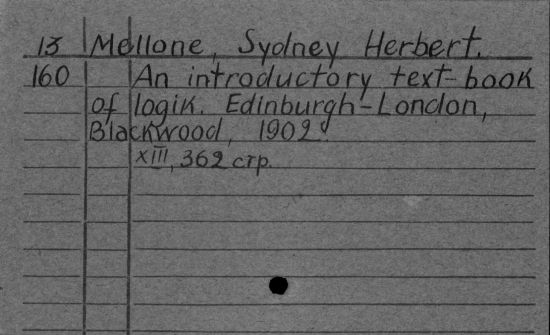 13 Mellone, Sydney Herbert.
160 An introductory text-book
of logik. Edinburgh-London,
Blackwood, 1902.
XIII, 362 стр.